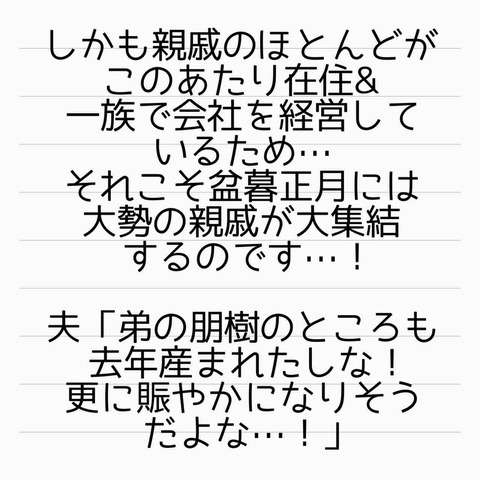 しかも親戚のほとんどが
このあたり在住&
一族で会社を経営して
いるため…
それこそ盆暮正月には
大勢の親戚が大集結
するのです…！
夫「弟の朋樹のところも
去年産まれたしな！
更に賑やかになりそう
だよな…！」